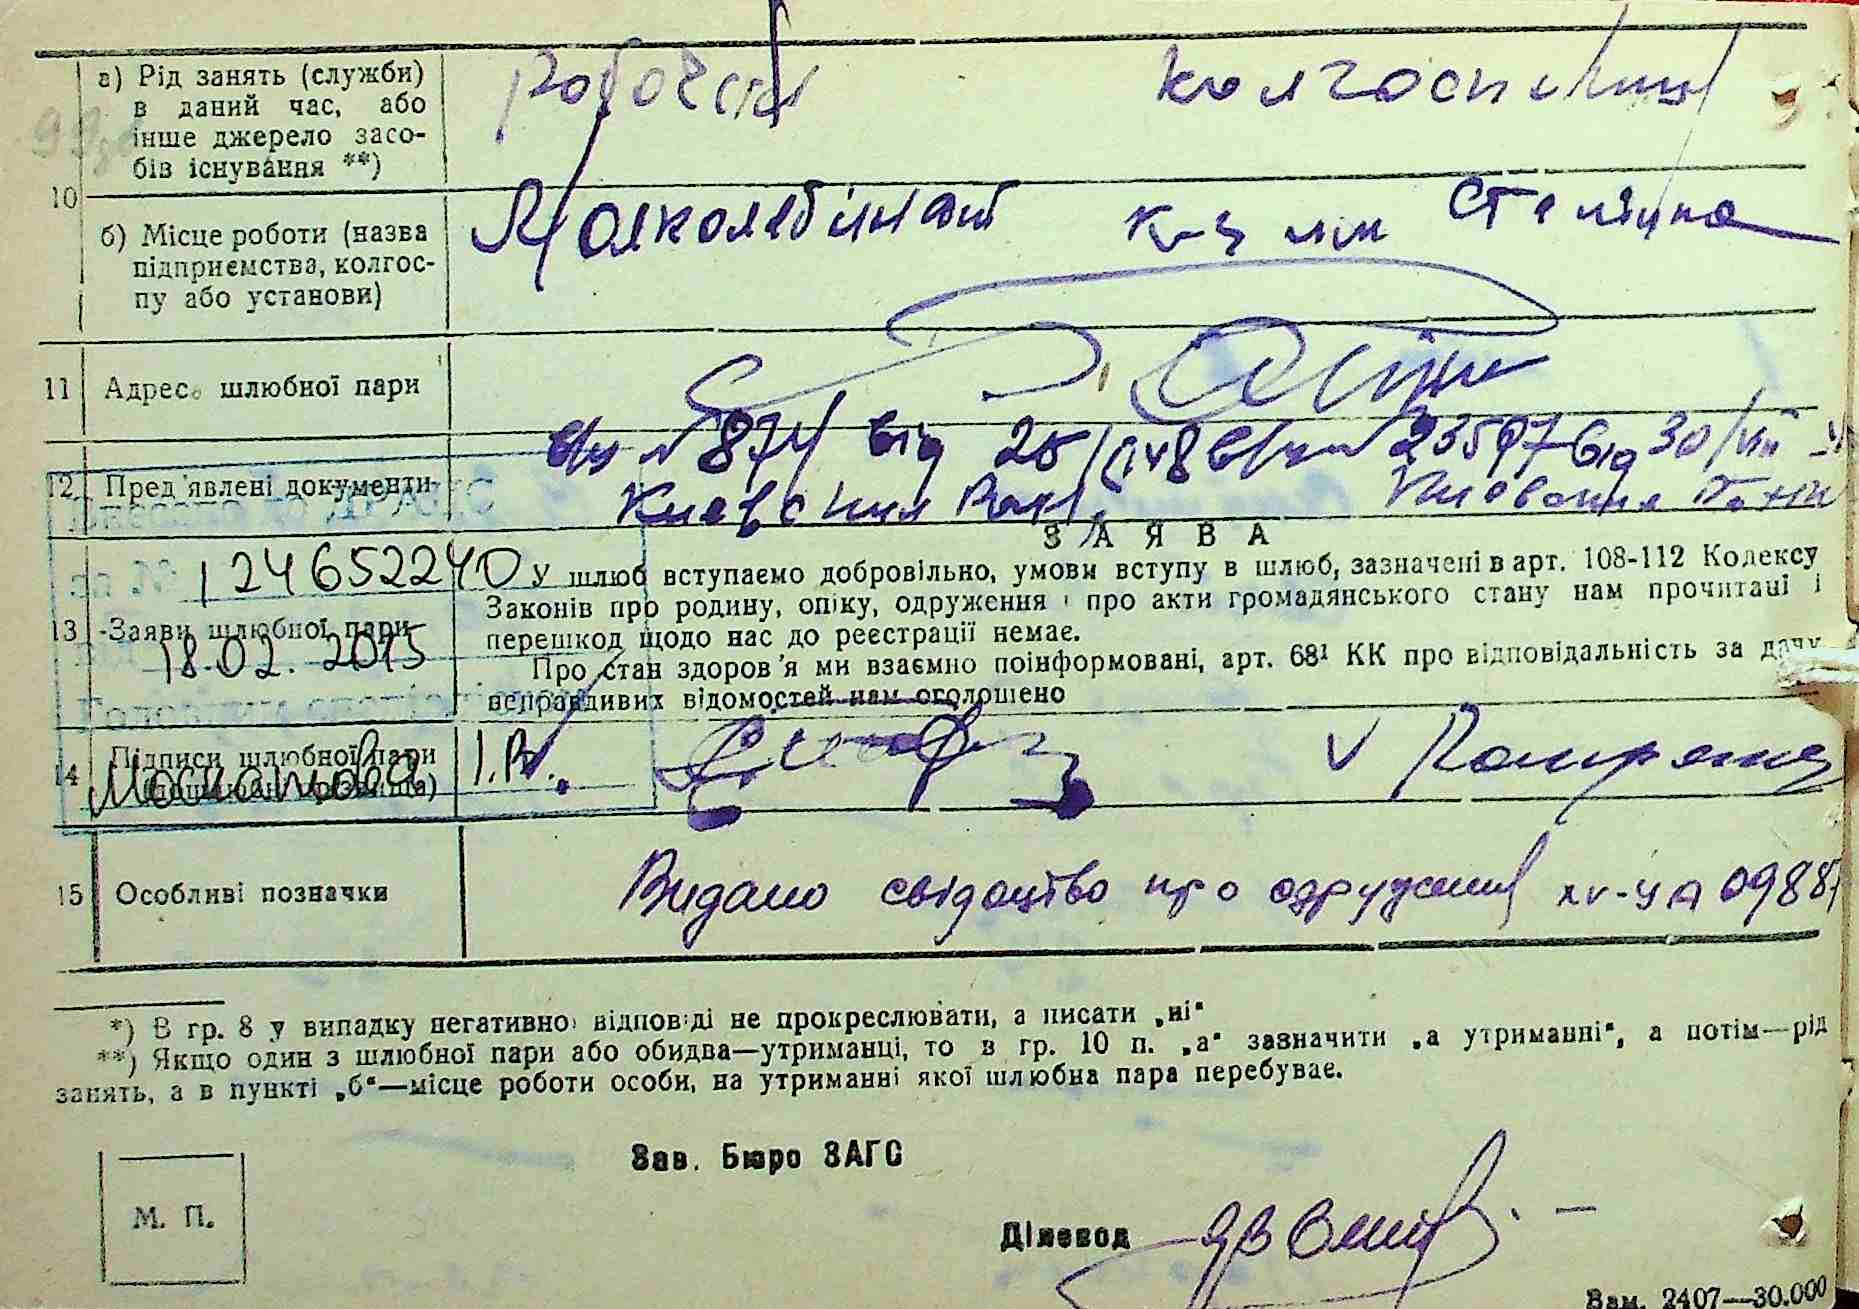 а) Рід занять (служби)
в даний час, або
інше джерело засо-
бів існування **)
колгоспниця
10
б) Місце роботи (назва
підприємства, колгос-
пу або установи)
К-ц їм Сталіна
11 Адрес шлюбної пари
№ 874 від
від 30/VIII
12 Пред'явлені документи
ЗАЯВА
124652240
18.02.2015
13 Заяви шлюбної пари
У шлюб вступаємо добровільно, умови вступу в шлюб, зазначені в арт. 108-112 Кодексу
Законів про родину, опіку, одруження і про акти громадянського стану нам прочитані і
перешкод щодо нас до реєстрації немає.
Про стан здоров'я ми взаємно поінформовані, арт. 68¹ КК про відповідальність за дачу
неправдивих відомостей нам оголошено
14 Підписи шлюбної пари
І.В.
15 Особливі позначки
Видано свідоцтво про одруження XV-УА 0988
*) В гр. 8 у випадку негативної відповіді не прокреслювати, а писати „ні"
**) Якщо один з шлюбної пари або обидва—утриманці, то в гр. 10 п. „а" зазначити „а утриманні", а потім—рід
занять, а в пункті „б"—місце роботи особи, на утриманні якої шлюбна пара перебуває.
Зав. Бюро ЗАГС
М. П.
Діловод
Зам. 2407—30.000